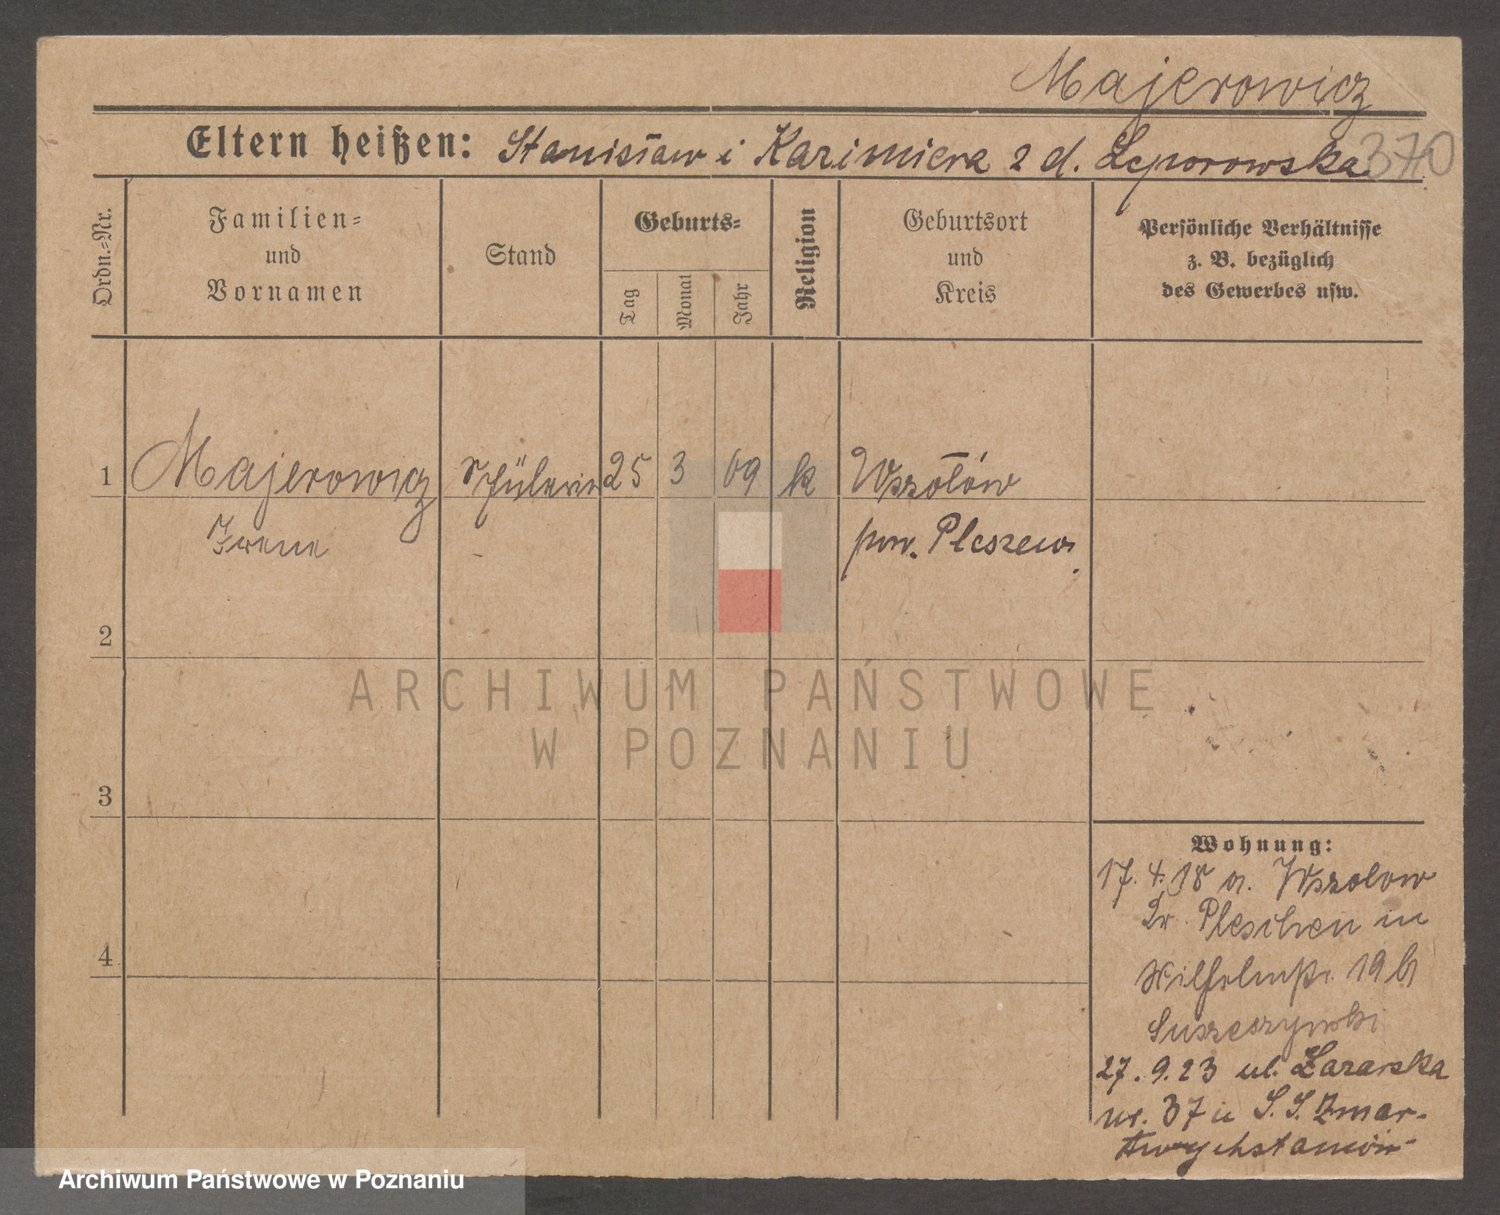 Majerowicz
Eltern heißen: Stanisław i Kazimiera z d. Leporowska 370
Ordn.-Nr.
Familien-
und
Vornamen
Stand
Geburts-
Tag
Monat
Jahr
Religion
Geburtsort
und
Kreis
Persönliche Verhältnisse
z. B. bezüglich
des Gewerbes usw.
1 Majerowicz Schülerin 25 3 09 k Wszołów
Irene pow. Pleszew.
2
3
4
Wohnung:
17. 4. 18 a. Wszolow
Kr. Pleschen in
Wilhelmstr. 19 b
27. 9. 23 ul. Łazarska
nr. 37 u S. S. Zmar-
twychstanów
ARCHIWUM PAŃSTWOWE
W POZNANIU
Archiwum Państwowe w Poznaniu